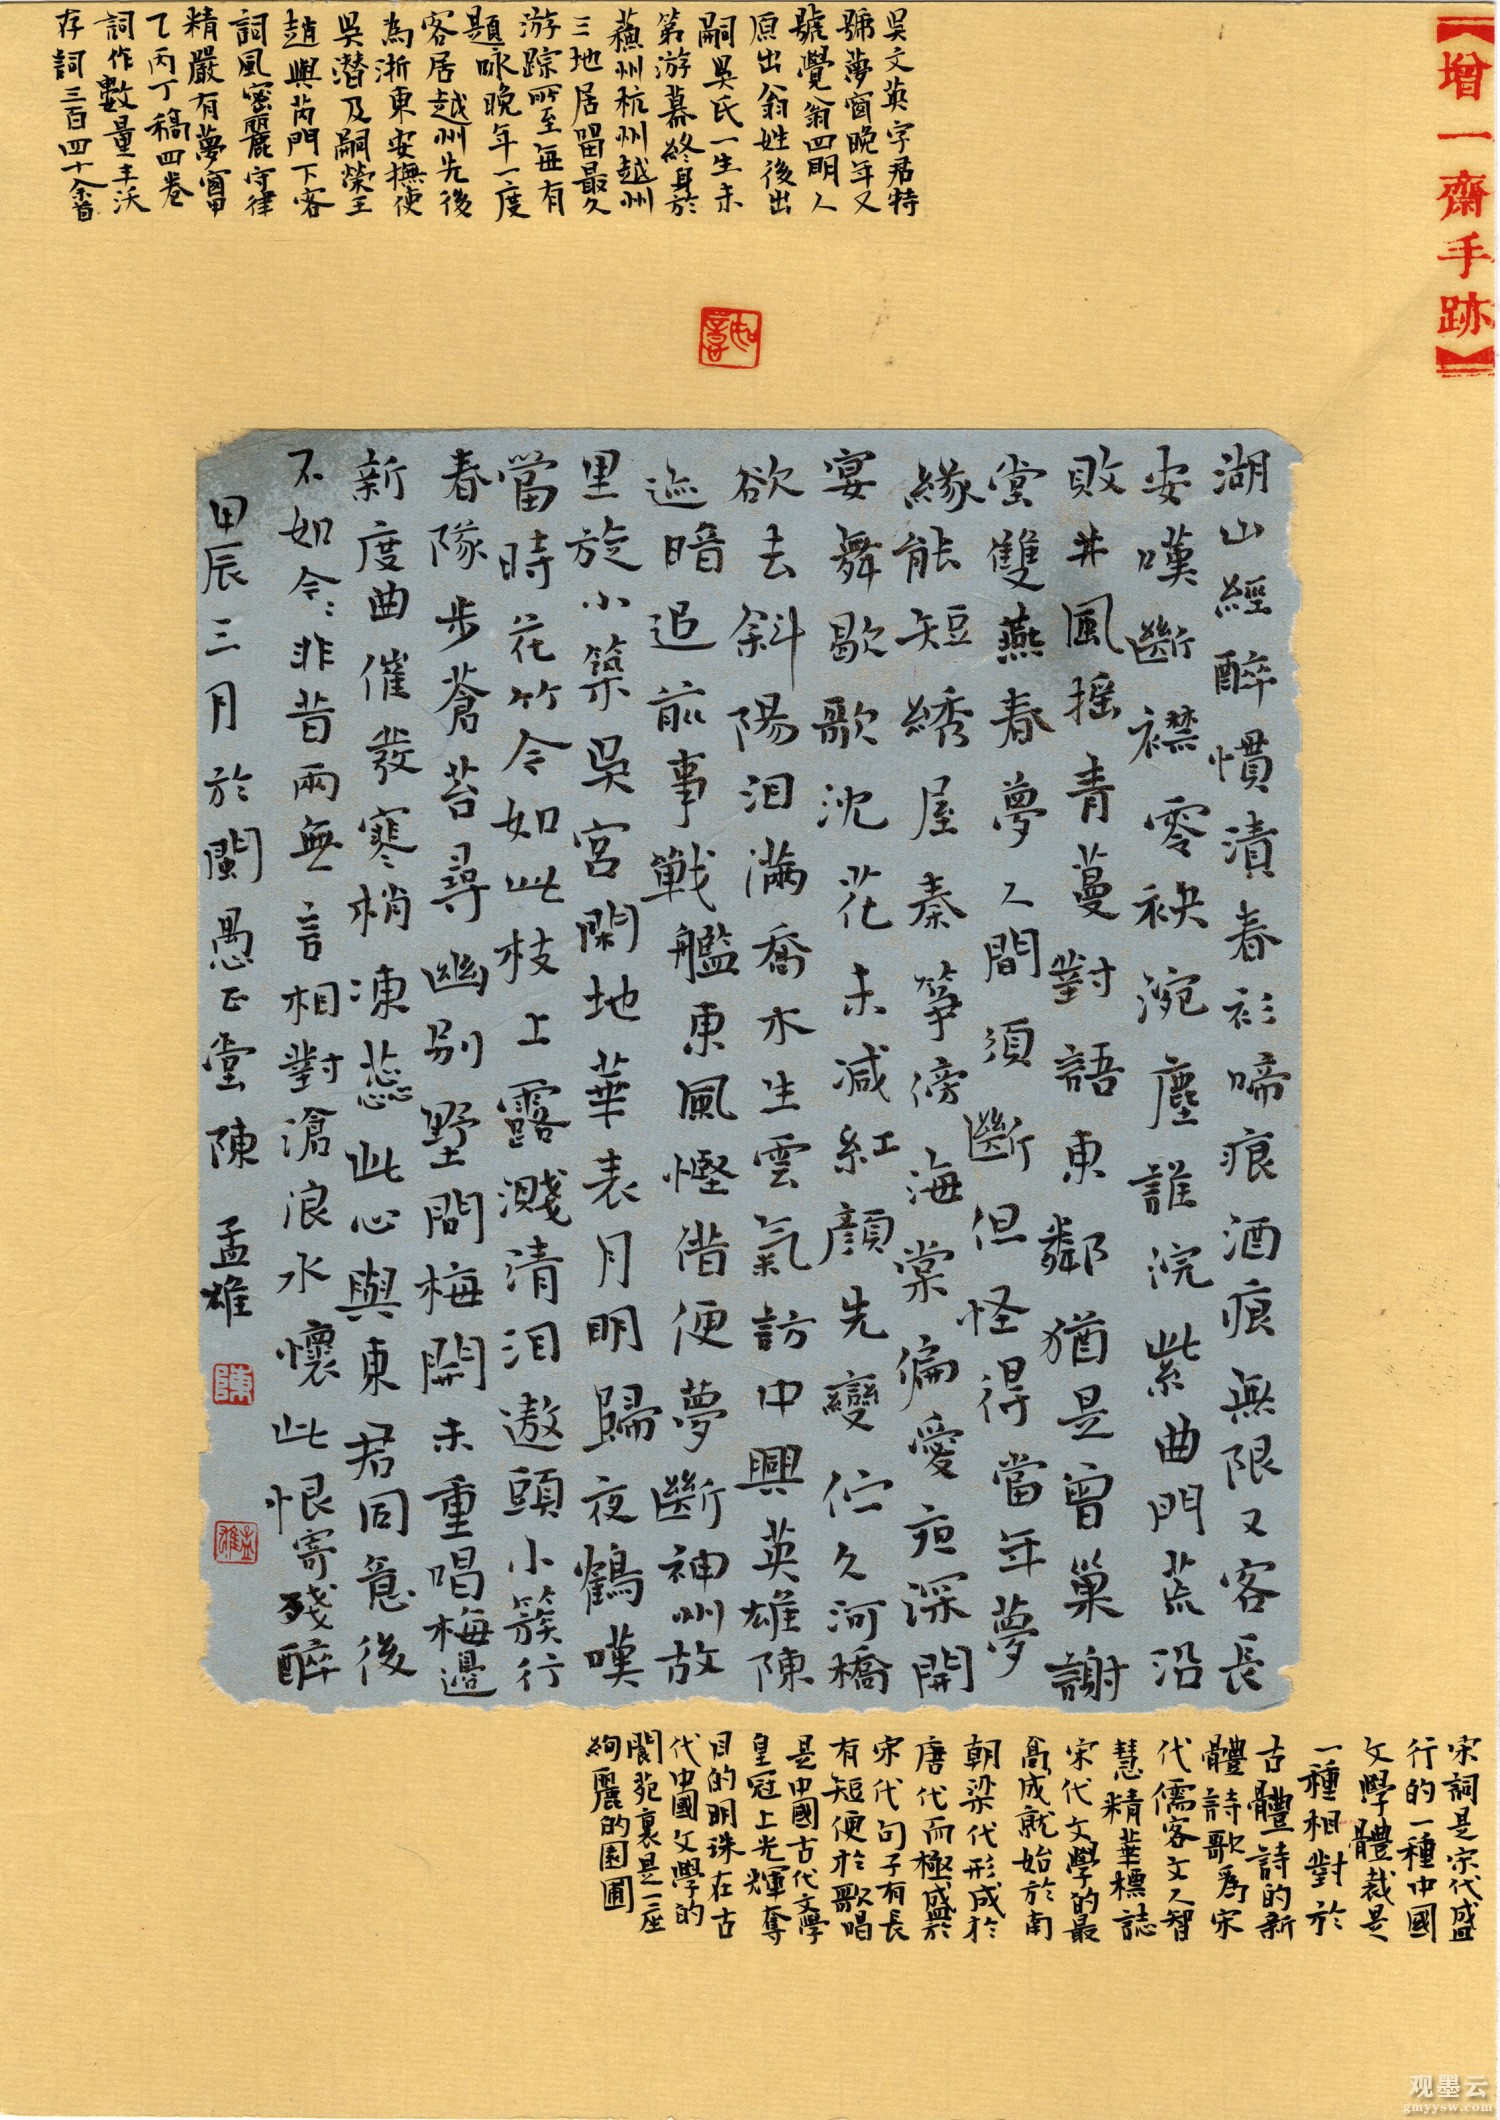 【增一齋手跡】
吳文英字君特
號夢窗晚年又
號覺翁四明人
原出翁姓後出
嗣吳氏一生未
第游幕終身於
蘇州杭州越州
三地居留最久
游踪所至每有
題咏晚年一度
客居越州先後
為浙東安撫使
吳潜及嗣榮王
趙與芮門下客
詞風密麗守律
精嚴有夢窗甲
乙丙丁稿四卷
詞作數量丰沃
存詞三百四十余首
湖山經醉慣漬春衫啼痕酒痕無限又客長
安嘆斷襟零袂涴塵誰浣紫曲門荒沿
敗井風摇青蔓對語東鄰猶是曾巢謝
堂雙燕春夢人間須斷但怪得當年夢
緣能短綉屋秦筝傍海棠偏愛夜深開
宴舞歇歌沈花未减紅顏先變伫久河橋
欲去斜陽泪滿喬木生雲氣訪中興英雄陳
迹暗追前事戰艦東風慳借便夢斷神州故
里旋小築吳宫閑地華表月明歸夜鶴嘆
當時花竹今如此枝上露濺清泪遨頭小簇行
春隊步蒼苔尋幽别墅問梅開未重唱梅邊
新度曲催發寒梢凍蕊此心與東君同意後
不如今今非昔兩無言相對滄浪水懷此恨寄殘醉
甲辰三月於閩愚正堂陳孟雄
陳
孟雄
宋詞是宋代盛
行的一種中國
文學體裁是
一種相對於
古體詩的新
體詩歌爲宋
代儒客文人智
慧精華標誌
宋代文學的最
高成就始於南
朝梁代形成於
唐代而極盛於
宋代句子有長
有短便於歌唱
是中國古代文學
皇冠上光輝奪
目的明珠在古
代中國文學的
閬苑裏是一座
絢麗的園圃
观墨云
gmyysw.com